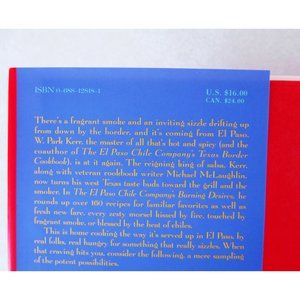 ISBN 0-688-12818-1
U.S. $16.00
CAN. $24.00
There's a fragrant smoke and an inviting sizzle drifting up
from down by the border, and it's coming from El Paso.
W. Park Kerr, the master of all that's hot and spicy (and the
coauthor of The El Paso Chile Company's Texas Border
Cookbook), is at it again. The reigning king of salsa, Kerr,
along with veteran cookbook writer Michael McLaughlin,
now turns his west Texas taste buds toward the grill and the
smoker. In The El Paso Chile Company's Burning Desires, he
rounds up over 160 recipes for familiar favorites as well as
fresh new fare, every zesty morsel kissed by fire, touched by
fragrant smoke, or blessed by the heat of chiles.
This is home cooking the way it's served up in El Paso, by
real folks, real hungry for something that really sizzles. When
that craving hits you, consider the following, a mere sampling
of the potent possibilities.